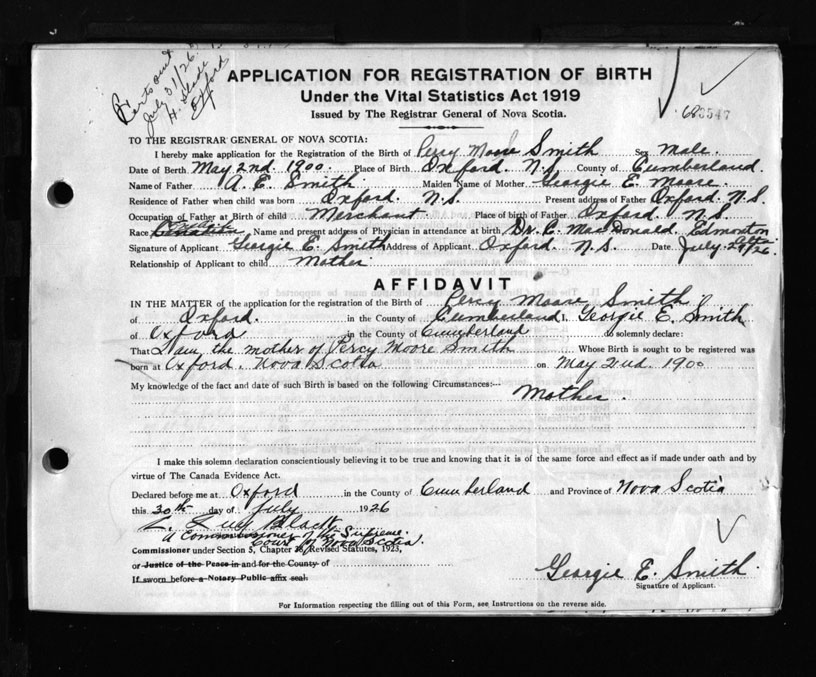 July 31/26.
Oxford
APPLICATION FOR REGISTRATION OF BIRTH
Under the Vital Statistics Act 1919
Issued by The Registrar General of Nova Scotia.
TO THE REGISTRAR GENERAL OF NOVA SCOTIA:
I hereby make application for the Registration of the Birth of Percy Moore Smith Sex Male.
Date of Birth May 2nd. 1900. Place of Birth Oxford. N.S. County of Cumberland.
Name of Father A. E. Smith Maiden Name of Mother Georgie E. Moore.
Residence of Father when child was born Oxford. N.S. Present address of Father Oxford. N.S.
Occupation of Father at Birth of child Merchant. Place of birth of Father Oxford. N.S.
Race Name and present address of Physician in attendance at birth Dr. C. MacDonald. Edmonton Alta
Signature of Applicant Georgie E. Smith Address of Applicant Oxford. N.S. Date July 29/26.
Relationship of Applicant to child Mother
AFFIDAVIT
IN THE MATTER of the application for the registration of the Birth of Percy Moore Smith
of Oxford. in the County of Cumberland I, Georgie E. Smith
of Oxford in the County of Cumberland do solemnly declare:
That I am the mother of Percy Moore Smith Whose Birth is sought to be registered was
born at Oxford. Nova Scotia on May 2nd. 1900
My knowledge of the fact and date of such Birth is based on the following Circumstances:--
Mother.
I make this solemn declaration conscientiously believing it to be true and knowing that it is of the same force and effect as if made under oath and by
virtue of The Canada Evidence Act.
Declared before me at Oxford in the County of Cumberland and Province of Nova Scotia
this 30th day of July 1926
A Commissioner of the Supreme
Court of Nova Scotia.
Commissioner under Section 5, Chapter Revised Statutes, 1923,
or Justice of the Peace in and for the County of
If sworn before a Notary Public affix seal.
Georgie E. Smith.
Signature of Applicant.
For Information respecting the filling out of this Form, see Instructions on the reverse side.